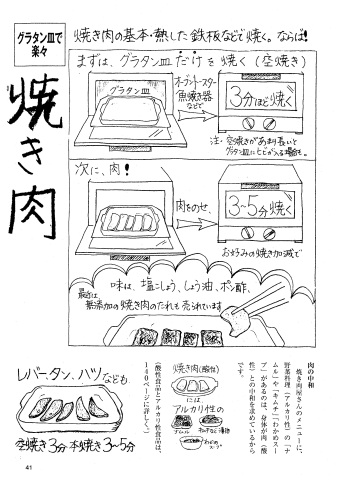 グラタン皿で
楽々
焼き肉
焼き肉の基本・熱した鉄板などで焼く。ならば!
まずは、グラタン皿だけを焼く(空焼き)
グラタン皿
オーブントースター
魚焼き器
などで
3分ほど焼く
注・空焼きがあまり長いと
グラタン皿にヒビが入る場合も。
次に、肉!
肉をのせ、
3~5分焼く
お好みの焼き加減で
味は、塩こしょう、しょう油、ポン酢、
最近は
無添加の焼き肉のたれも売られています
レバー、タン、ハツなども
空焼き3分 本焼き3~5分
焼き肉(酸性)
には
アルカリ性の
ナムル
キムチなど漬物
わかめスープ
肉の中和
焼き肉屋さんのメニューに、
野菜料理(アルカリ性)の「ナ
ムル」や「キムチ」「わかめスー
プ」があるのは、身体が肉(酸
性)との中和を求めているから
です。
(酸性食品とアルカリ性食品は、
140ページに詳しく。)
41